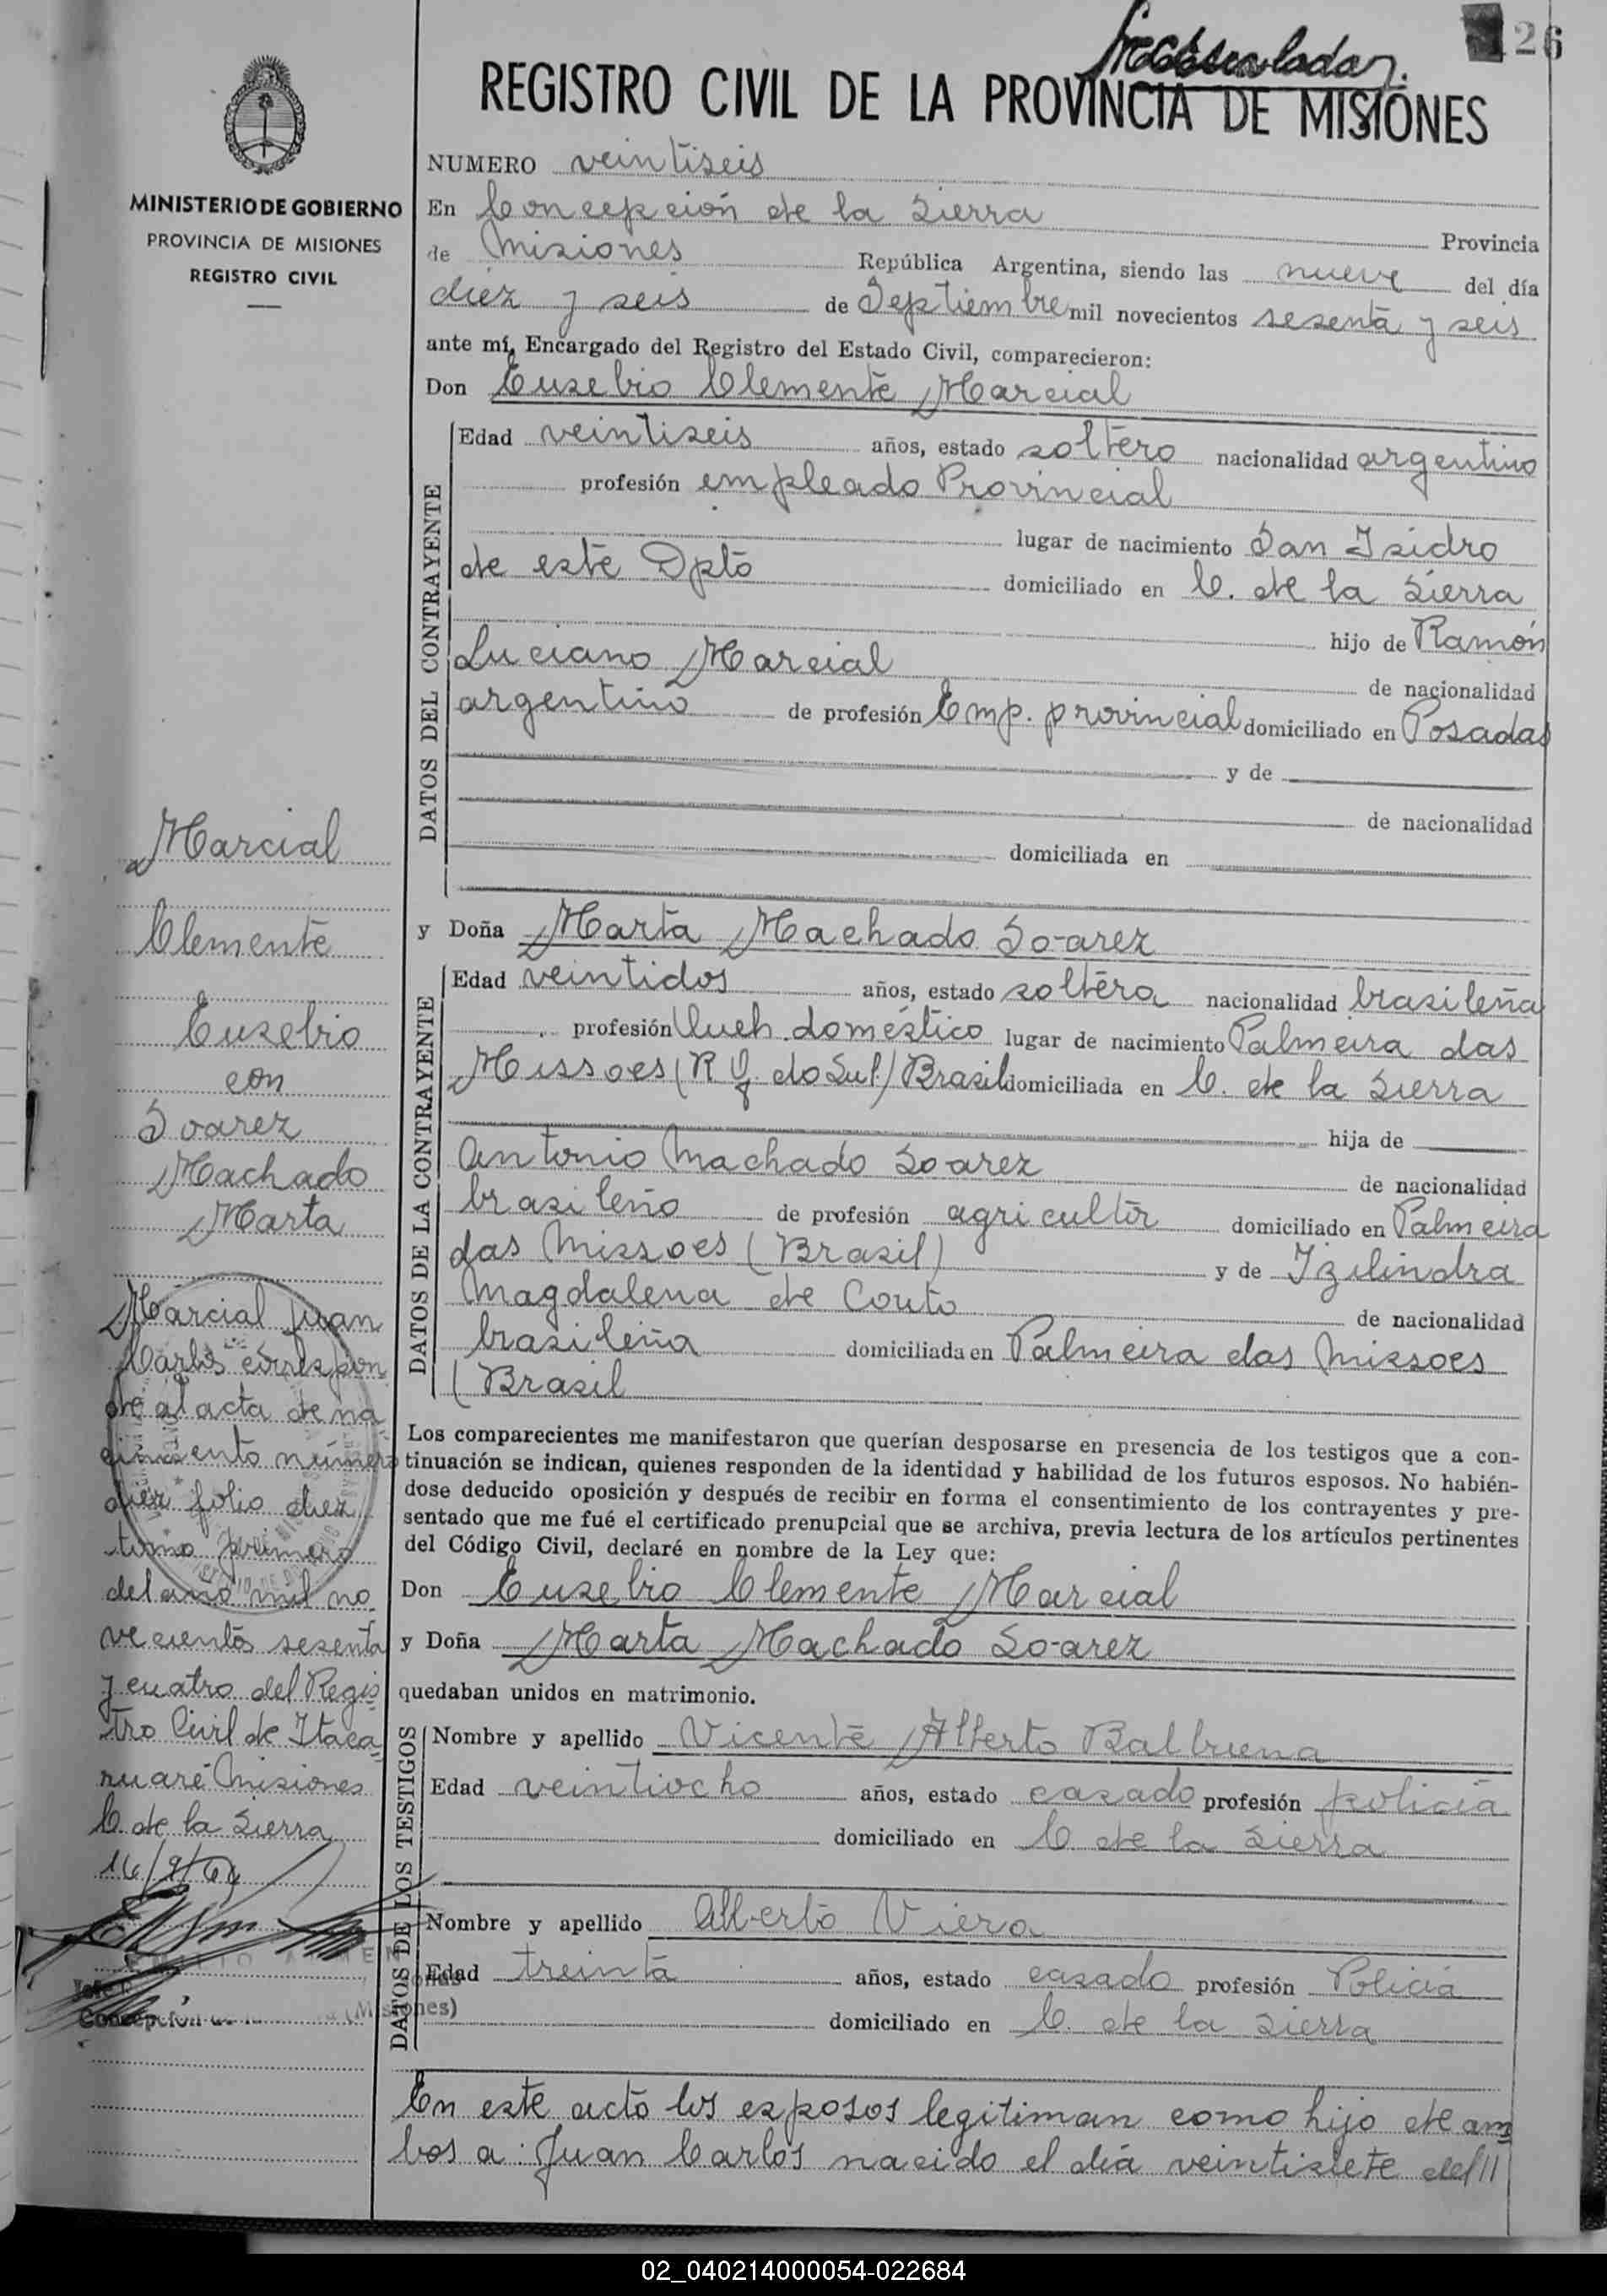 26
REGISTRO CIVIL DE LA PROVINCIA DE MISIONES
MINISTERIO DE GOBIERNO
PROVINCIA DE MISIONES
REGISTRO CIVIL
NUMERO veintiseis
En Concepción de la Sierra Provincia
de Misiones República Argentina, siendo las nueve del día
diez y seis de Septiembre mil novecientos sesenta y seis
ante mí, Encargado del Registro del Estado Civil, comparecieron:
Don Eusebio Clemente Marcial
DATOS DEL CONTRAYENTE
Edad veintiseis años, estado soltero nacionalidad argentino
profesión empleado Provincial
lugar de nacimiento San Isidro
de este Dpto domiciliado en C. de la Sierra
hijo de Ramón
Luciano Marcial de nacionalidad
argentino de profesión Emp. provincial domiciliado en Posadas
y de
de nacionalidad
domiciliada en
y Doña Marta Machado Soarez
DATOS DE LA CONTRAYENTE
Edad veintidos años, estado soltera nacionalidad brasileña
profesión Queh. doméstico lugar de nacimiento Palmeira das
Missoes (R G. do Sul) Brasil domiciliada en C. de la Sierra
hija de
Antonio Machado Soarez de nacionalidad
brasileño de profesión agricultor domiciliado en Palmeira
das Missoes (Brasil) y de Izilindra
Magdalena de Couto de nacionalidad
brasileña domiciliada en Palmeira das Missoes
(Brasil
Los comparecientes me manifestaron que querían desposarse en presencia de los testigos que a con-
tinuación se indican, quienes responden de la identidad y habilidad de los futuros esposos. No habién-
dose deducido oposición y después de recibir en forma el consentimiento de los contrayentes y pre-
sentado que me fué el certificado prenupcial que se archiva, previa lectura de los artículos pertinentes
del Código Civil, declaré en nombre de la Ley que:
Don Eusebio Clemente Marcial
y Doña Marta Machado Soarez
quedaban unidos en matrimonio.
DATOS DE LOS TESTIGOS
Nombre y apellido Vicente Alberto Balbuena
Edad veintiocho años, estado casado profesión policia
domiciliado en C de la Sierra
Nombre y apellido Alberto Viera
Edad treinta años, estado casado profesión Policia
domiciliado en C. de la Sierra
En este acto los esposos legitiman como hijo de am
bos a: Juan Carlos nacido el día veintisiete del //
Marcial
Clemente
Eusebio
con
Soarez
Machado
Marta
Marcial Juan
Carlos correspon
de al acta de na
cimiento número
diez folio diez
tomo primero
del año mil no
vecientos sesenta
y cuatro del Regis
tro Civil de Itaca
ruaré Misiones
C. de la Sierra
16/9/66
02_040214000054-022684